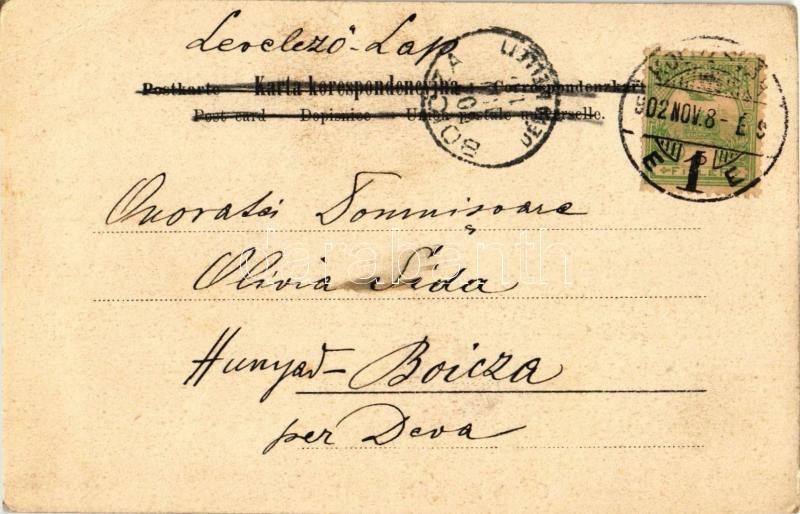 Levelező-Lap
Postkarte Karta korespondencyjna Correspondenzkart
Post card Dopisnice Union postale universelle.
BOICZA
902 NOV. 8 - É
1
5
FILLÉR
Onoratei Domnisoare
Olivia
Hunyad-Boicza
per Deva
darabanth